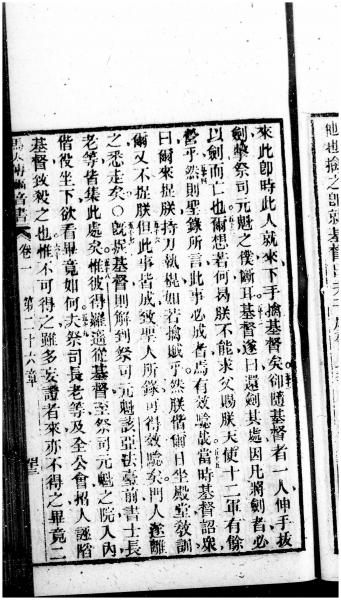 他也擒之卽就基督曰夫子
來此卽時此人就來下手擒基督矣卻隨基督者一人伸手拔
劍擊祭司元魁之僕斷耳基督遂曰還劍其處因凡將劍者必
以劍而亡也爾想若何曷朕不能求父賜朕天使十二軍有餘
乎然則聖錄所言此事必成者焉有效驗哉當時基督詔眾
曰爾來捉朕持刀執棍如若擒賊乎然朕偕爾日坐殿堂敎訓
爾又不捉朕但此事皆成致聖人所錄可得效驗矣門人遂離
之悉走矣〇旣捉基督則解到祭司元魁該亞法臺前書士長
老等皆集此處矣惟彼得離遙從基督至祭司元魁之院入內
偕役坐下欲看畢竟如何夫祭司長老等及全公會招人誣謟
基督致殺之也惟不可得之雖多妄證者來亦不得之畢竟二
馬太傳福音書 卷一 第二十六章